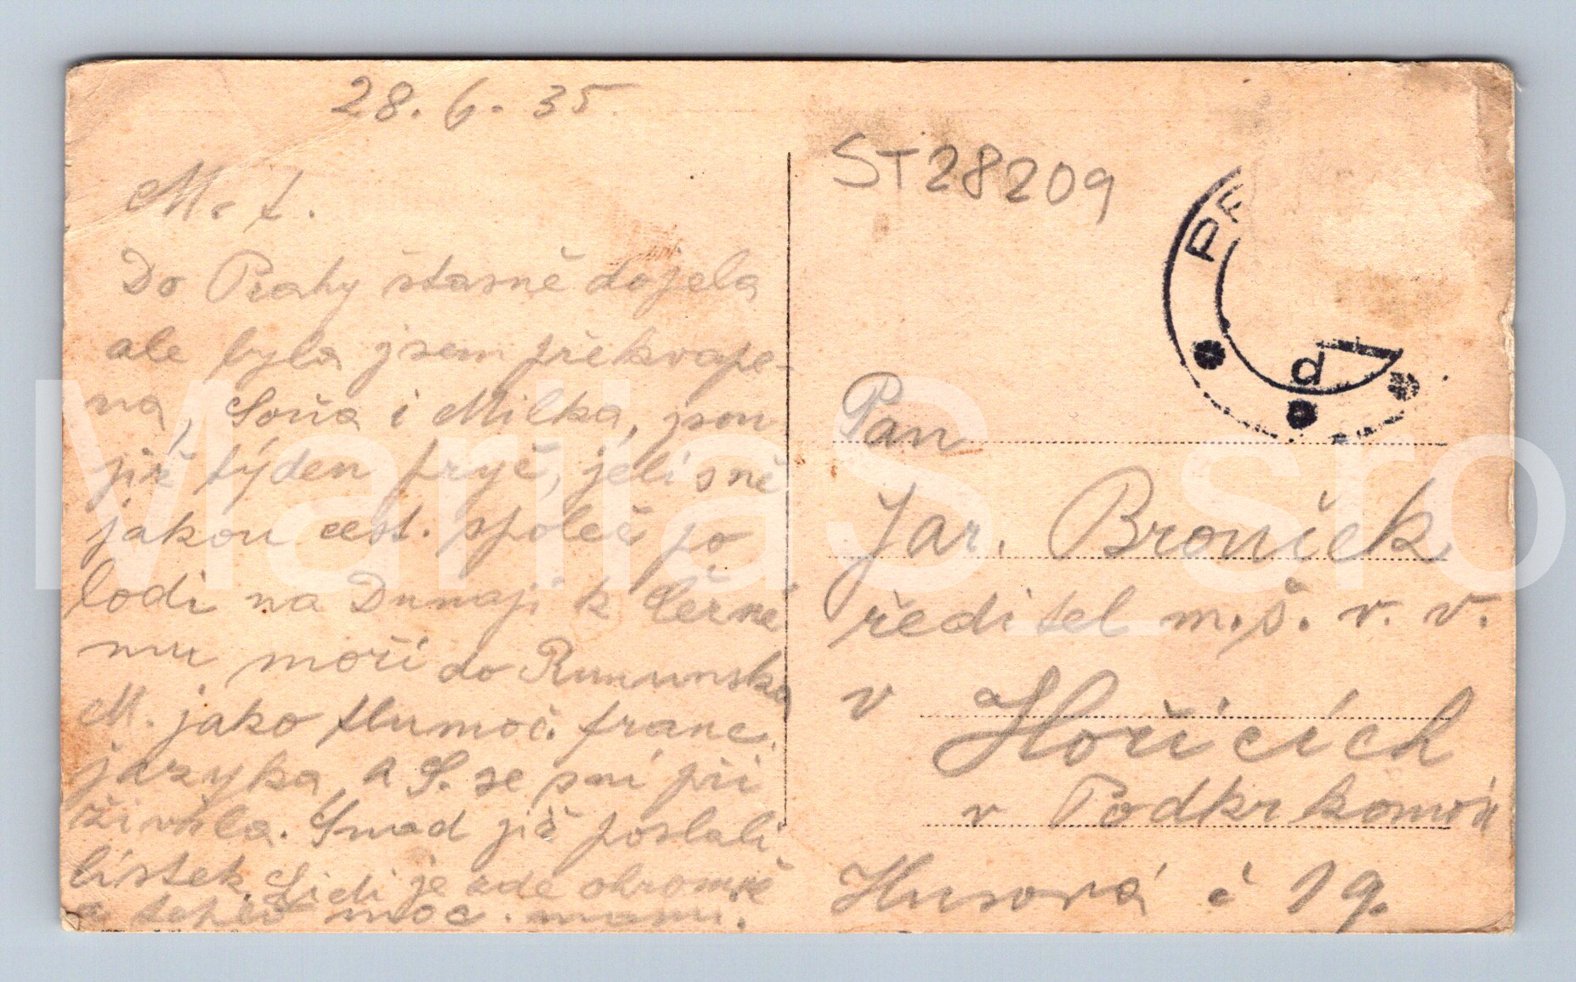 28. 6. 35.
M. t.
Do Prahy štasně dojela
ale byla jsem překvape-
na, Soňa i Milka, jsou
již týden pryč, jeli s ně
jakou cest. společ po
lodi na Dunaji k Černé
mu moři do Rumunska
M. jako tlumoč. franc.
jazyka a S. se s ní při
živila. Snad již poslali
lístek. Lidi je zde ohromně
a teplo moc.
ST28209
PR
d
Pan
Jar. Broníček
ředitel m. š. v. v.
v Hořicích
v Podkrkonoší
Husová č 19.
MarijaS_sro